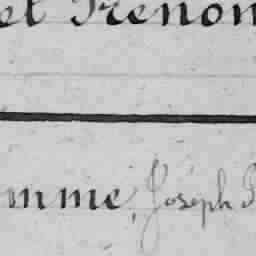 et Prénom
omme, Joseph